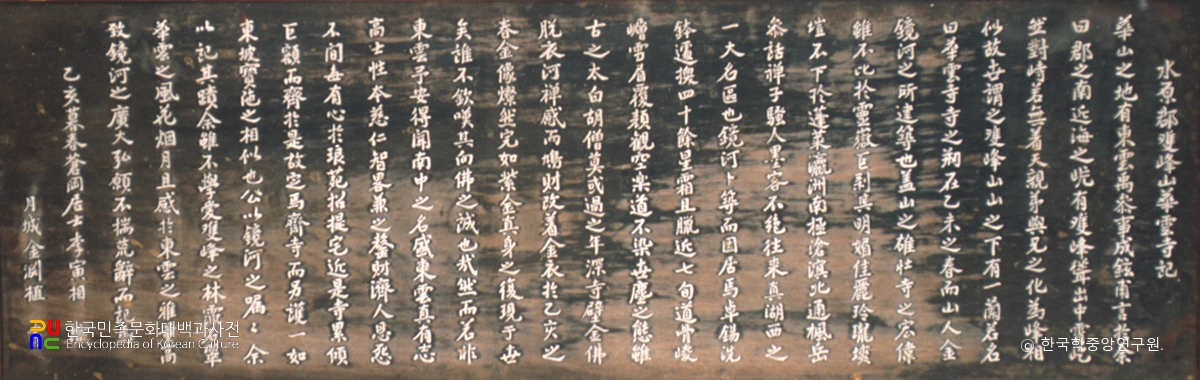 水原郡雙峰山華雲寺記
華山之地有東雲禹參軍成鉉甫言於余
曰郡之南近海之㞳有雙峰聳出中霄屹
然對峙若無着天親弟與兄之化為峰相
似故世謂之雙峰山山之下有一蘭若名
曰華雲寺寺之刱石乙未之春而山人金
鏡河之所建等也盖山之雄壮寺之宏偉
雖不比於靈嶽巨刹其明媚佳麗玲瓏
塏不下於蓬萊瀛洲南極滄溟北通楓岳
叅話禅子騷人墨客不絶往来真湖西之
一大名區也鏡河卜築而因居焉卓锡洗
鉢遞換四十餘星霜且臘近七旬道骨崚
嶒雪眉覆顔觀空楽道不染世塵之態雖
古之太白胡僧莫或過之年深寺壁金佛
脱衣河禅感而鳩財改着金衣於乙亥之
春金像燦然完如紫金真身之復現于世
矣誰不欽嘆其向佛之誠也哉然而若非
東雲予安得聞南中之名感東雲直有志
高士性本慈仁智畧兼之鏊財濟人恩怨
不間每有心於琅苑招提宅近是寺累傾
巨額而齊於是故定焉齊寺而另護一如
東坡寶陁之相似也公以鏡河之囑囑余
以記其蹟余雖不與愛雙峰之林雪華
華雲之風花烟月且感於東雲之雅高
致鏡河之廣大弘願不揣荒辭而記
乙亥暮春蒼岡居士李寅相
月城金潤植
한국민족문화대백과사전
Encyclopedia of Korean Culture
© 한국학중앙연구원.